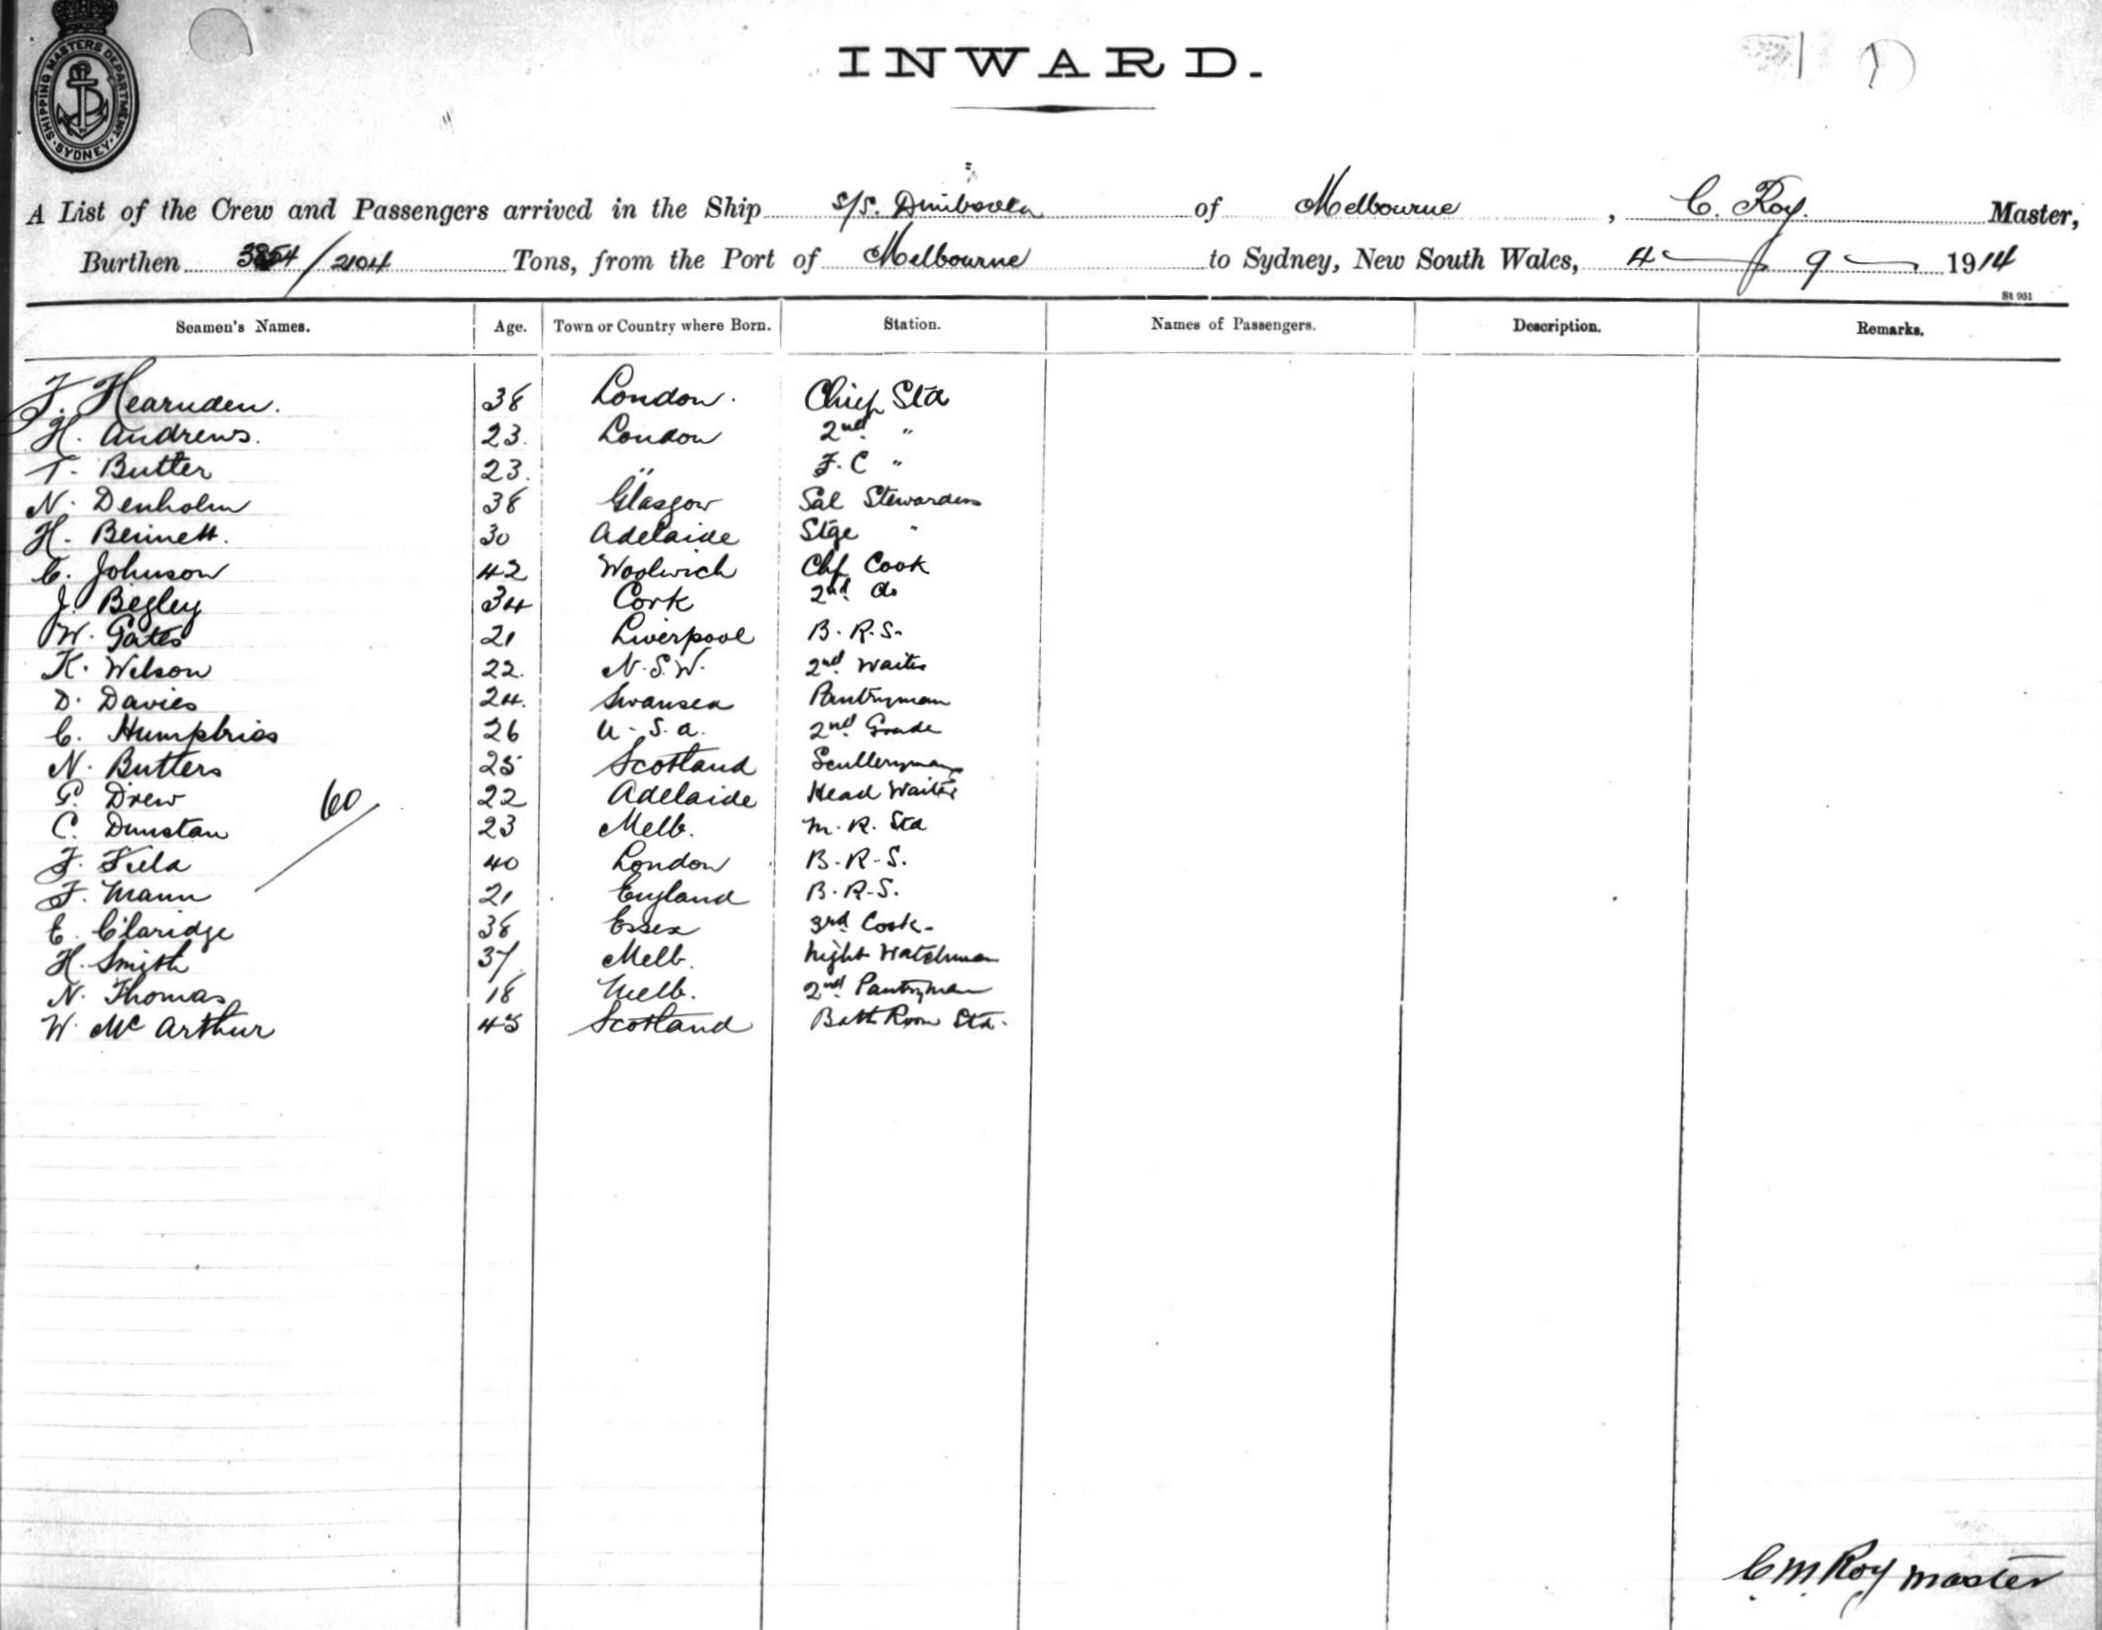 SHIPPING MASTERS DEPARTMENT
SYDNEY
INWARD.
A List of the Crew and Passengers arrived in the Ship S/S. Dimboola of Melbourne, C. Roy. Master,
Burthen 3854/2104 Tons, from the Port of Melbourne to Sydney, New South Wales, 4 / 9 1914
St 951
Seamen's Names. Age. Town or Country where Born. Station. Names of Passengers. Description. Remarks.
F. Hearnden. 38 London. Chief Std
H. Andrews. 23. London 2nd "
T. Butter 23. " F. C "
N. Denholm 38 Glasgow Sal Stewardess
H. Bennett. 30 Adelaide Stge "
C. Johnson 42 Woolwich Chf Cook
J. Begley 34 Cork 2nd do
W. Gates 21 Liverpool B. R. S.
K. Wilson 22. N.S.W. 2nd Waiter
D. Davies 24. Swansea Pantryman
C. Humphries 26 U.S.A. 2nd Grade
N. Butters 25 Scotland Sculleryman
P. Drew 22 Adelaide Head Waiter
60
C. Dunstan 23 Melb. M. R. Std
F. Field 40 London B. R. S.
F. Mann 21 England B. R. S.
E. Claridge 38 Essex 3rd Cook
H. Smith 37 Melb. Night Watchman
N. Thomas 18 Melb. 2nd Pantryman
W. McArthur 45 Scotland Bath Room Std.
C. M. Roy master